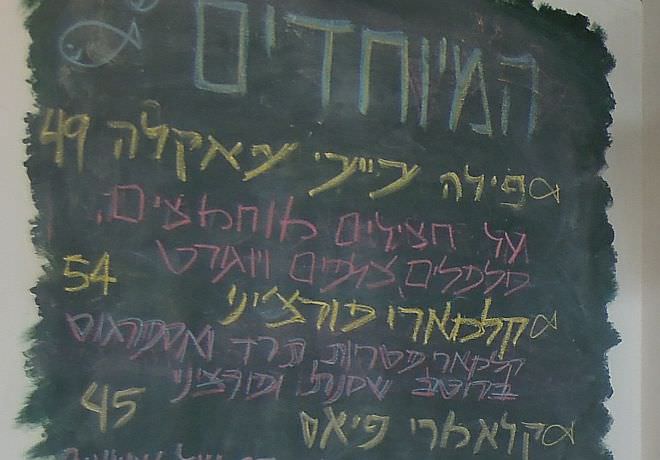 המיוחדים
פילה צ'יצ'י צ'אקלה 49
על חצילים מוחמצים,
פלפלים צלויים ויוגורט
קלמארי פורצ'יני 54
פטריות תרד ואספרגוס
ברוטב שמנת ופורצ'יני
קלאמרי פיאס 45